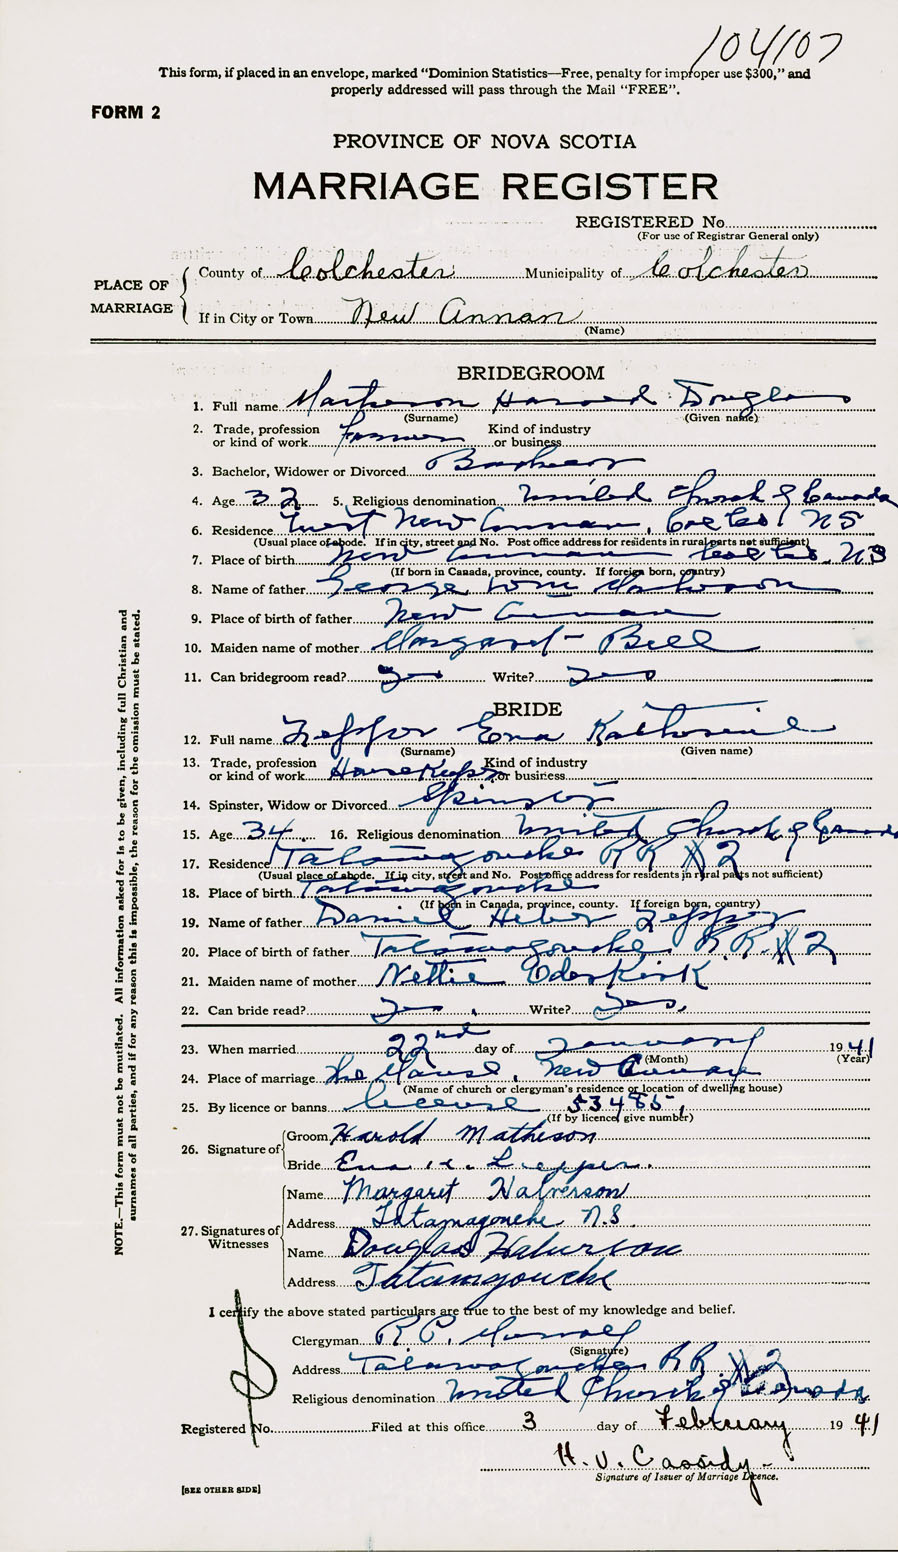 104107
This form, if placed in an envelope, marked "Dominion Statistics—Free, penalty for improper use $300," and
properly addressed will pass through the Mail "FREE".
FORM 2
PROVINCE OF NOVA SCOTIA
MARRIAGE REGISTER
REGISTERED No.
(For use of Registrar General only)
PLACE OF MARRIAGE
County of Colchester Municipality of Colchester
If in City or Town New Annan
(Name)
BRIDEGROOM
1. Full name Matheson Harold Douglas
(Surname) (Given name)
2. Trade, profession or kind of work Farmer Kind of industry or business
3. Bachelor, Widower or Divorced Bachelor
4. Age 32 5. Religious denomination United Church of Canada
6. Residence West New Annan, Col Co. NS
(Usual place of abode. If in city, street and No. Post office address for residents in rural parts not sufficient)
7. Place of birth New Annan Col Co. NS
(If born in Canada, province, county. If foreign born, country)
8. Name of father George Wm Matheson
9. Place of birth of father New Annan
10. Maiden name of mother Margaret Bell
11. Can bridegroom read? yes Write? yes
BRIDE
12. Full name Lepper Ena Katherine
(Surname) (Given name)
13. Trade, profession or kind of work Housekeeper Kind of industry or business
14. Spinster, Widow or Divorced Spinster
15. Age 34 16. Religious denomination United Church of Canada
17. Residence Tatamagouche RR #2
(Usual place of abode. If in city, street and No. Post office address for residents in rural parts not sufficient)
18. Place of birth Tatamagouche
(If born in Canada, province, county. If foreign born, country)
19. Name of father Daniel Heber Lepper
20. Place of birth of father Tatamagouche R.R. #2
21. Maiden name of mother Nettie
22. Can bride read? yes. Write? yes.
23. When married 22nd day of January 1941
(Month) (Year)
24. Place of marriage The Manse, New Annan
(Name of church or clergyman's residence or location of dwelling house)
25. By licence or banns license 53485,
(If by licence, give number)
26. Signature of Groom Harold Matheson
Bride Ena K. Lepper.
27. Signatures of Witnesses
Name Margaret Halverson
Address Tatamagouche N.S.
Name Douglas Halverson
Address Tatamagouche
I certify the above stated particulars are true to the best of my knowledge and belief.
Clergyman R.C.
(Signature)
Address Tatamagouche RR #2
Religious denomination United Church of Canada
Registered No. Filed at this office 3 day of February 1941
H. V. Cassidy
Signature of Issuer of Marriage Licence.
[SEE OTHER SIDE]
NOTE.—This form must not be mutilated. All information asked for is to be given, including full Christian and
surnames of all parties, and if for any reason this is impossible, the reason for the omission must be stated.